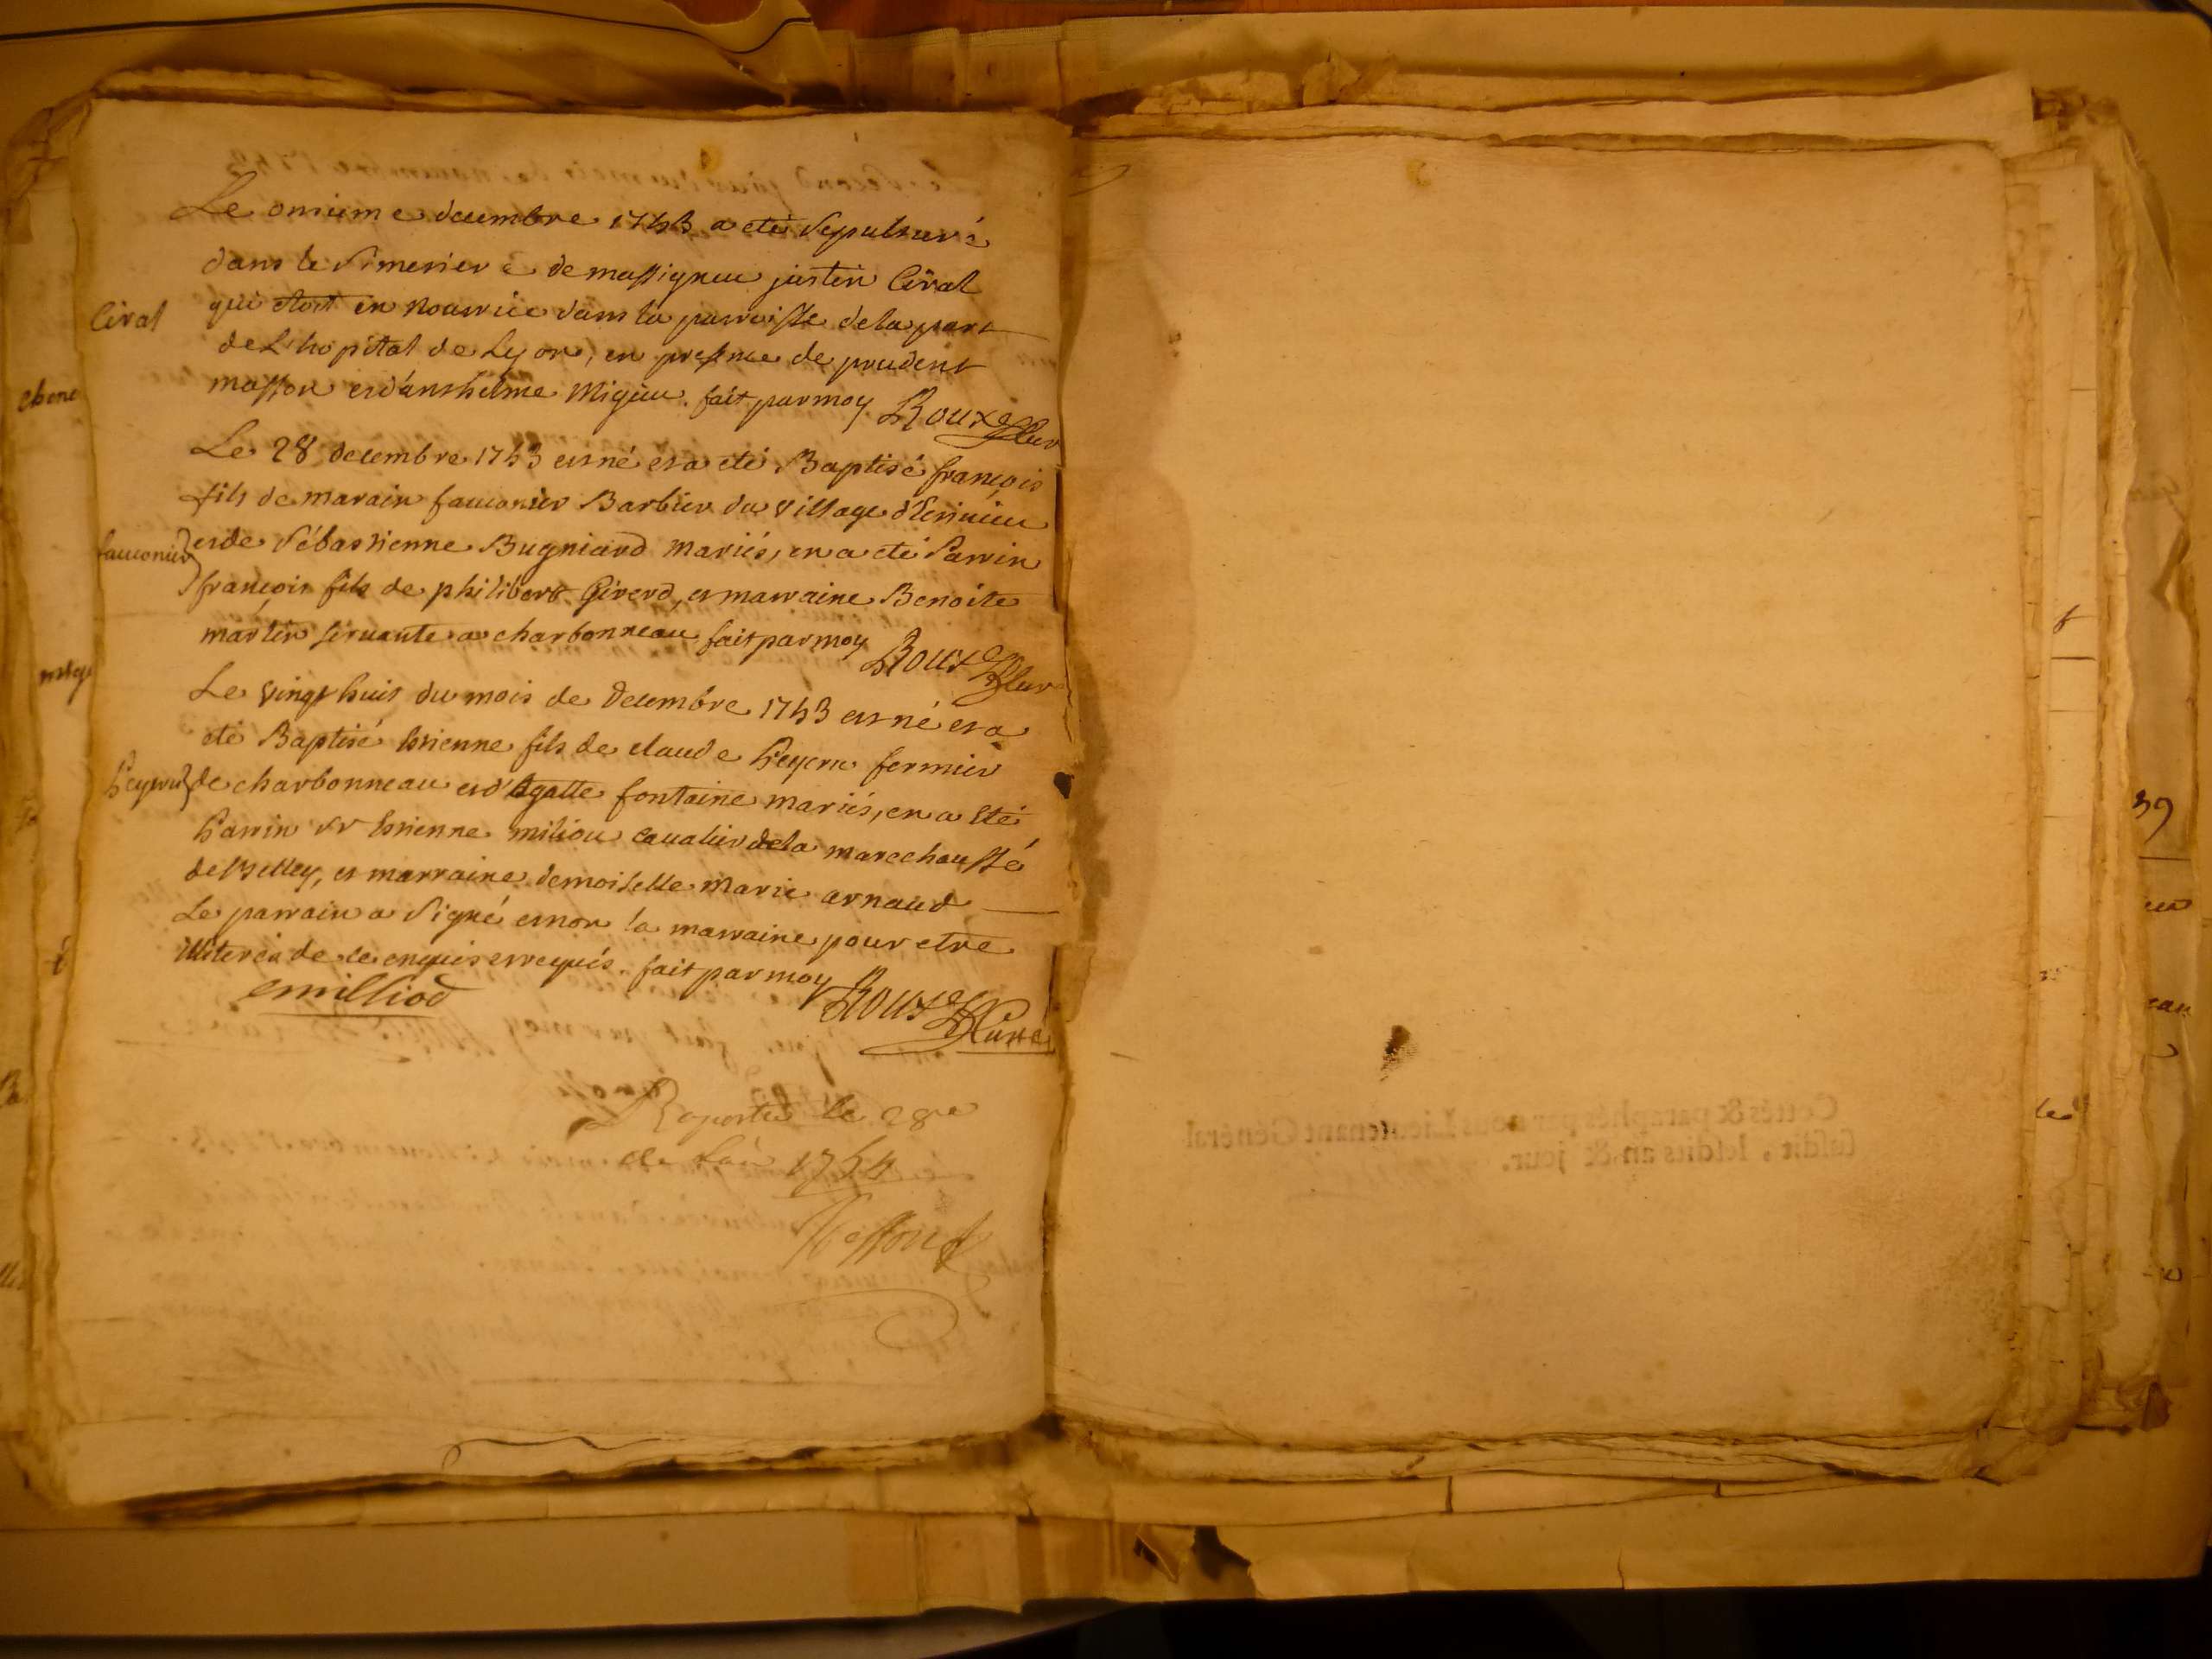 Le onzieme decembre 1753 a eté sepulturé
dans le simetiere de massignieu justin Ciral
Ciral
qui etoit en nourrice dans la parroisse de la part
de L'hopital de Lyon, en presence de prudent
masson et d'anthelme Migieu. fait par moy Roux Cur
Le 28 decembre 1753 est né et a eté Baptisé françois
fils de marain fauconier Barbier du village
fauconier
et de sébastienne Bugniard mariés, en a eté Parrin
françois fils de philibert Girerd, et marraine Benoite
martin servante a charbonneau fait par moy Roux Cur
Le vingt huit du mois de Decembre 1753 est né et a
eté Baptisé Estienne fils de claude Peycru fermier
Peycru
de charbonneau et d'Agatte fontaine mariés, en a eté
Parrin sr Estienne miliou cavalier de la marechaussé
de Belley, et marraine demoiselle Marie arnaud
Le parrain a signé et non la marraine pour etre
illiterée de ce enquis et requis. fait par moy Roux Curé
emilliod
Raporté le 28re
1754
Cottés & paraphés par nous Lieutenant Général
susdit, lesdits an & jour.
39